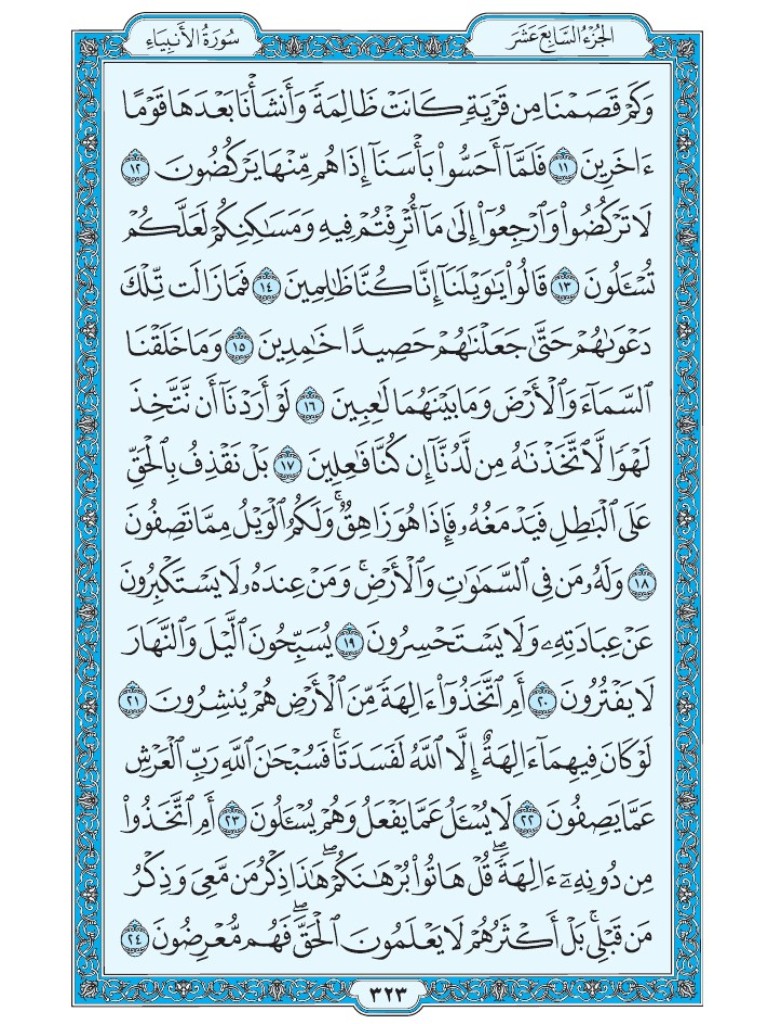 الجزء السابع عشر
سورة الأنبياء
وَكَمْ قَصَمْنَا مِن قَرْيَةٍ كَانَتْ ظَالِمَةً وَأَنشَأْنَا بَعْدَهَا قَوْمًا
ءَاخَرِينَ ١١ فَلَمَّآ أَحَسُّوا۟ بَأْسَنَآ إِذَا هُم مِّنْهَا يَرْكُضُونَ ١٢
لَا تَرْكُضُوا۟ وَٱرْجِعُوٓا۟ إِلَىٰ مَآ أُتْرِفْتُمْ فِيهِ وَمَسَـٰكِنِكُمْ لَعَلَّكُمْ
تُسْـَٔلُونَ ١٣ قَالُوا۟ يَـٰوَيْلَنَآ إِنَّا كُنَّا ظَـٰلِمِينَ ١٤ فَمَا زَالَت تِّلْكَ
دَعْوَىٰهُمْ حَتَّىٰ جَعَلْنَـٰهُمْ حَصِيدًا خَـٰمِدِينَ ١٥ وَمَا خَلَقْنَا
ٱلسَّمَآءَ وَٱلْأَرْضَ وَمَا بَيْنَهُمَا لَـٰعِبِينَ ١٦ لَوْ أَرَدْنَآ أَن نَّتَّخِذَ
لَهْوًا لَّٱتَّخَذْنَـٰهُ مِن لَّدُنَّآ إِن كُنَّا فَـٰعِلِينَ ١٧ بَلْ نَقْذِفُ بِٱلْحَقِّ
عَلَى ٱلْبَـٰطِلِ فَيَدْمَغُهُۥ فَإِذَا هُوَ زَاهِقٌ ۚ وَلَكُمُ ٱلْوَيْلُ مِمَّا تَصِفُونَ
١٨ وَلَهُۥ مَن فِى ٱلسَّمَـٰوَٰتِ وَٱلْأَرْضِ ۚ وَمَنْ عِندَهُۥ لَا يَسْتَكْبِرُونَ
عَنْ عِبَادَتِهِۦ وَلَا يَسْتَحْسِرُونَ ١٩ يُسَبِّحُونَ ٱلَّيْلَ وَٱلنَّهَارَ
لَا يَفْتُرُونَ ٢٠ أَمِ ٱتَّخَذُوٓا۟ ءَالِهَةً مِّنَ ٱلْأَرْضِ هُمْ يُنشِرُونَ ٢١
لَوْ كَانَ فِيهِمَآ ءَالِهَةٌ إِلَّا ٱللَّهُ لَفَسَدَتَا ۚ فَسُبْحَـٰنَ ٱللَّهِ رَبِّ ٱلْعَرْشِ
عَمَّا يَصِفُونَ ٢٢ لَا يُسْـَٔلُ عَمَّا يَفْعَلُ وَهُمْ يُسْـَٔلُونَ ٢٣ أَمِ ٱتَّخَذُوا۟
مِن دُونِهِۦٓ ءَالِهَةً ۖ قُلْ هَاتُوا۟ بُرْهَـٰنَكُمْ ۖ هَـٰذَا ذِكْرُ مَن مَّعِىَ وَذِكْرُ
مَن قَبْلِى ۗ بَلْ أَكْثَرُهُمْ لَا يَعْلَمُونَ ٱلْحَقَّ ۖ فَهُم مُّعْرِضُونَ ٢٤
٣٢٣